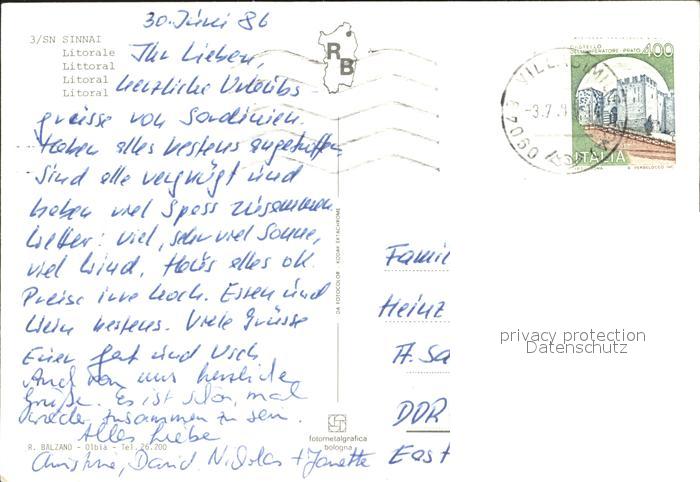 30. Juni 86
3/SN SINNAI
Litorale
Littoral
Litoral
Litoral
Ihr Lieben,
herzliche Urlaubs-
grüsse von Sardinien.
Haben alles bestens angetroffen.
Sind alle vergnügt und
haben viel Spass zusammen.
Wetter: viel, sehr viel Sonne,
viel Wind, Haus alles ok.
Preise irre hoch. Essen und
Wein bestens. Viele Grüsse
Euer Gert und Usch
Auch von uns herzliche
Grüße. Es ist schön, mal
wieder zusammen zu sein.
Alles Liebe
R. BALZANO - Olbia - Tel. 26.200
Christine, David, Nicolas + Janette
RB
DA FOTOCOLOR KODAK EKTACHROME
fotometalgrafica
bologna
CASTELLO
DELL'IMPERATORE - PRATO 400
ITALIA
VILLASIMI
-3.7.8
09049
Famil
Heinz
A. Sa
DDR
East
privacy protection
Datenschutz